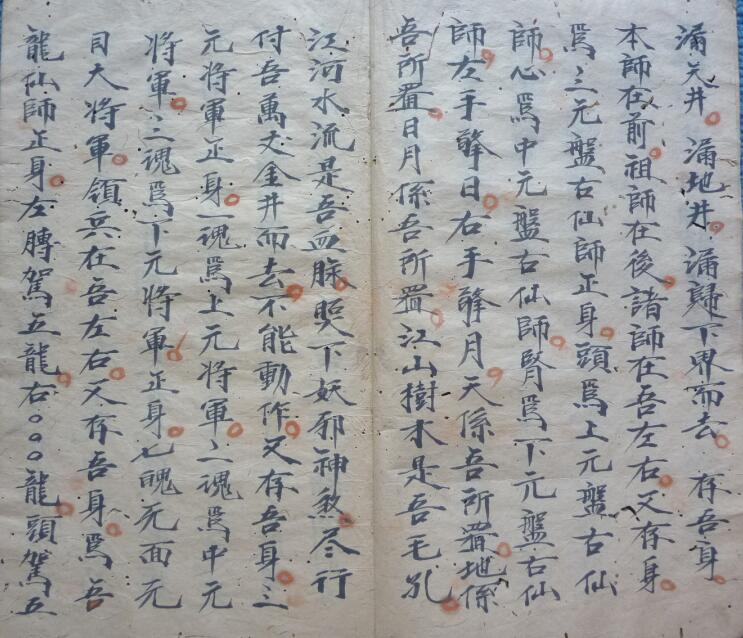 漏天井漏地井漏歸下界而去 存吾身
本師在前祖師在後諸師在吾左右又存身
爲三元盤古仙師正身頭爲上元盤古仙
師心爲中元盤古仙師腎爲下元盤古仙
師左手擎日右手擎月天係吾所置地係
吾所置日月係吾所置江山樹木是吾毛孔
江河水流是吾血脉煚下妖邪神煞尽行
付吾萬丈金井而去不能動作又存吾身三
元將軍正身一魂爲上元將軍二魂爲中元
將軍三魂爲下元將軍正身七魄元面元
目大將軍領兵在吾左右又存吾身爲五
龍仙師正身左膊駕五龍右○○○龍頭駕五